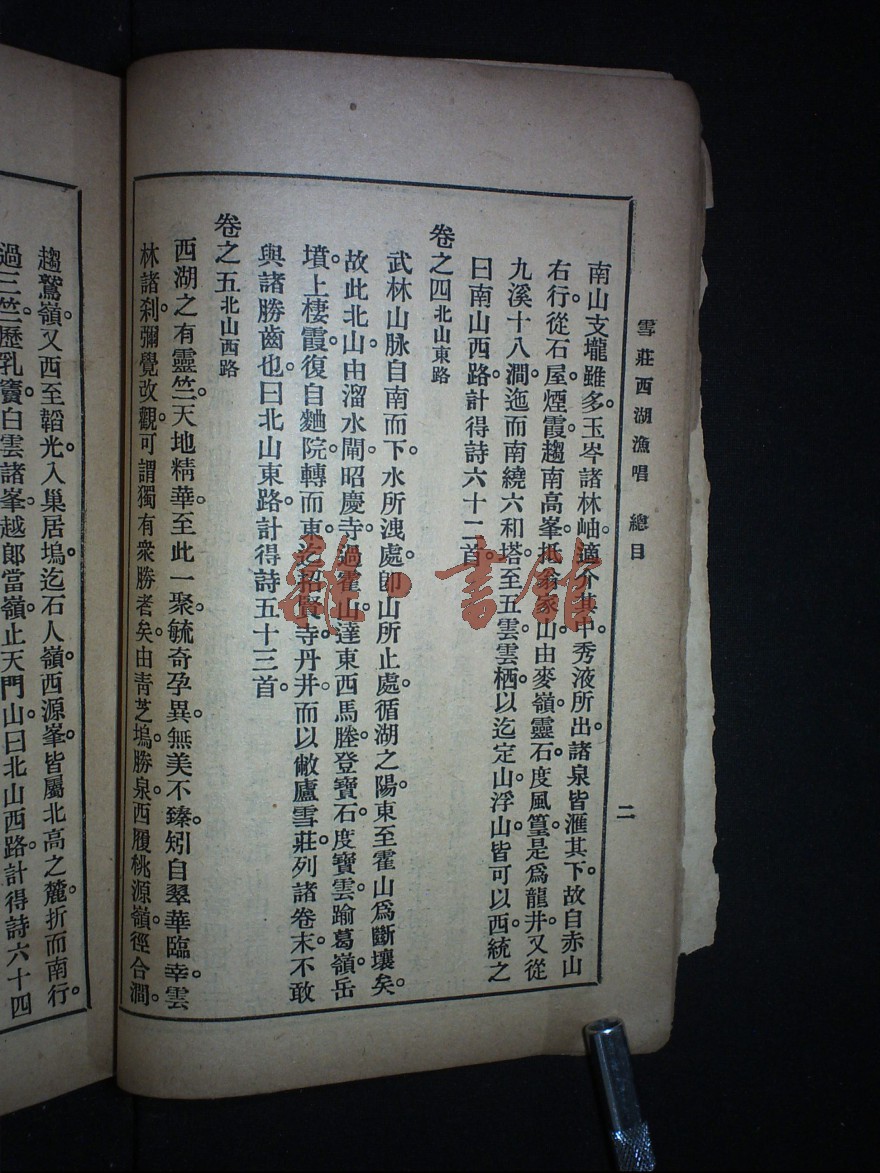 雪莊西湖漁唱　總目
二
南山支壠雖多。玉岑諸林岫適介其中。秀液所出。諸泉皆滙其下。故自赤山
右行。從石屋煙霞。趨南高峯。抵翁家山。由麥嶺靈石。度風篁。是爲龍井。又從
九溪十八澗。迤而南繞六和塔。至五雲雲栖。以迄定山浮山。皆可以西統之
曰南山西路。計得詩六十二首。
卷之四北山東路
武林山脉自南而下。水所洩處。卽山所止處。循湖之陽。東至霍山爲斷壤矣。
故此北山由溜水閘昭慶寺。過霍山。達東西馬塍。登寶石。度寶雲。踰葛嶺岳
墳。上棲霞。復自麯院。轉而東。迄招賢寺丹井。而以敝廬雪莊列諸卷末。不敢
與諸勝齒也。曰北山東路。計得詩五十三首。
卷之五北山西路
西湖之有靈竺。天地精華。至此一聚。毓奇孕異。無美不臻。矧自翠華臨幸。雲
林諸刹。彌覺改觀。可謂獨有衆勝者矣。由青芝塢勝泉。西履桃源嶺。徑合澗。
趨鷲嶺。又西至韜光。入巢居塢。迄石人嶺西源峯。皆屬北高之麓。折而南行。
過三竺。歷乳竇白雲諸峯。越郎當嶺。止天門山。曰北山西路。計得詩六十四
雜·書館